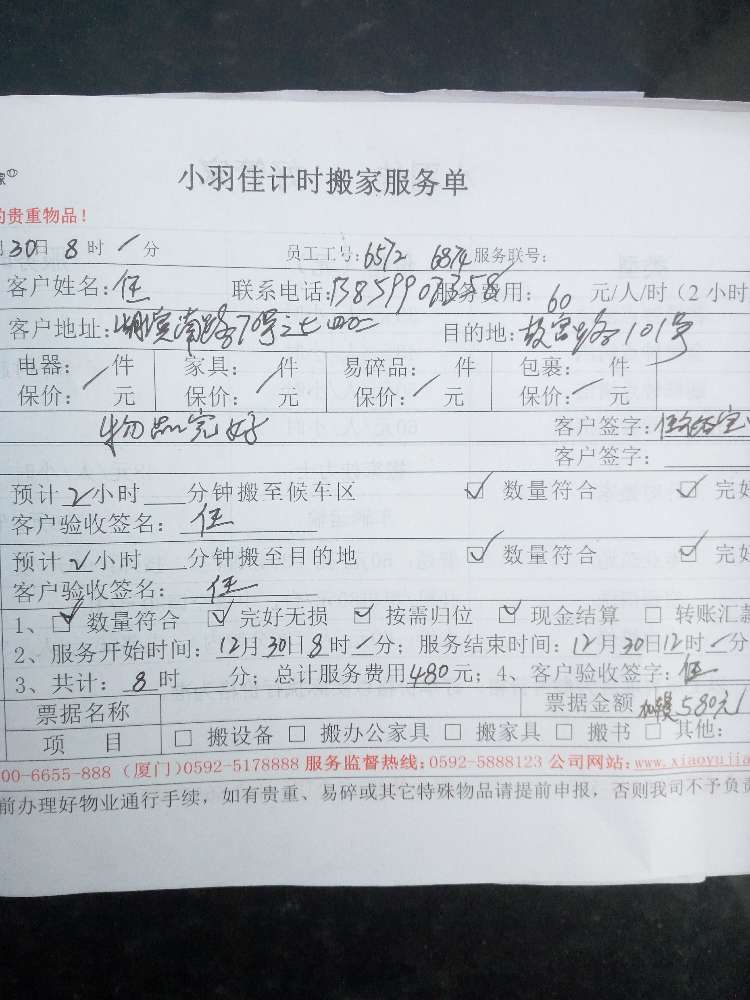 小羽佳计时搬家服务单
的贵重物品！
月30日8时/分 员工工号:6572 6874 服务联号:
客户姓名:任 联系电话:13859907358 服务费用:60元/人/时（2小时
客户地址:湖滨南路70号之七四 目的地:故宫路101号
电器: / 件 家具: / 件 易碎品: / 件 包裹: / 件
保价: 元 保价: 元 保价: 元 保价: 元
物品完好 客户签字:任
客户签字:
预计2小时 分钟搬至候车区 ☑ 数量符合 ☑ 完好
客户验收签名: 任
预计√小时 分钟搬至目的地 ☑ 数量符合 ☑ 完好
客户验收签名: 任
1、☑ 数量符合 ☑ 完好无损 ☑ 按需归位 ☑ 现金结算 □ 转账汇款
2、服务开始时间: 12月30日8时/分; 服务结束时间: 12月30日12时/分
3、共计: 8时 分; 总计服务费用480元; 4、客户验收签字: 任
票据名称 票据金额 580元
项 目 □ 搬设备 □ 搬办公家具 □ 搬家具 □ 搬书 □ 其他:
00-6655-888（厦门）0592-5178888 服务监督热线: 0592-5888123 公司网站: www.xiaoyujia
前办理好物业通行手续，如有贵重、易碎或其它特殊物品请提前申报，否则我司不予负责